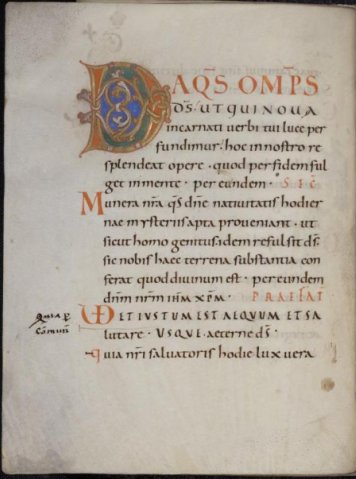 DAQS OMPS
DS. UT QUI NOUA
incarnati uerbi tui luce per
fundimur. hoc in nostro re
splendeat opere. quod per fidem ful
get in mente. per eundem. SEC
Munera nra qs dne natiuitatis hodier
nae mysteriis apta proueniant. ut
sicut homo genitus idem refulsit ds.
sic nobis haec terrena substantia con
ferat quod diuinum est. per eundem
dnm nrm ihm xpm. PRAEFAT
UD ET IUSTUM EST AEQUUM ET SA
lutare. USQUE. aeterne ds.
quia nri saluatoris hodie lux uera
Quia p
Comun